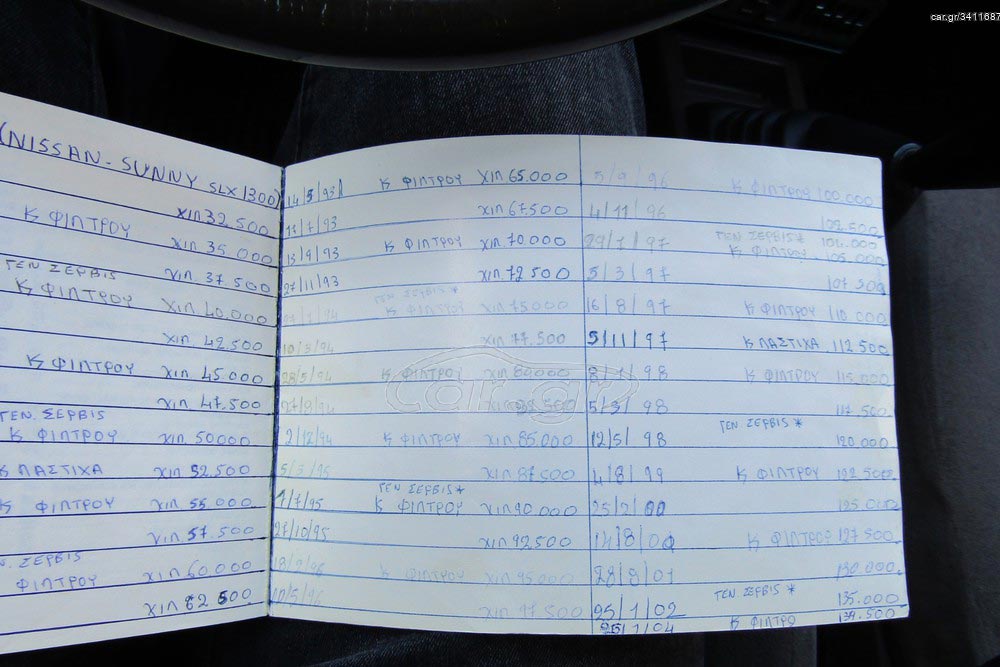 car.gr/3411687
(NISSAN - SUNNY SLX 1300)
χιλ 32.500
Κ ΦΙΛΤΡΟΥ χιλ 35.000
ΓΕΝ ΣΕΡΒΙΣ χιλ 37.500
Κ ΦΙΛΤΡΟΥ χιλ 40.000
χιλ 42.500
Κ ΦΙΛΤΡΟΥ χιλ 45.000
χιλ 47.500
ΓΕΝ. ΣΕΡΒΙΣ
Κ ΦΙΛΤΡΟΥ χιλ 50000
Κ ΛΑΣΤΙΧΑ χιλ 52.500
Κ ΦΙΛΤΡΟΥ χιλ 55.000
χιλ 57.500
Ν. ΣΕΡΒΙΣ
ΦΙΛΤΡΟΥ χιλ 60.000
χιλ 62500
14/5/93 Κ ΦΙΛΤΡΟΥ χιλ 65.000
/7/93 χιλ 67.500
/9/93 Κ ΦΙΛΤΡΟΥ χιλ 70.000
27/11/93 χιλ 72500
ΓΕΝ ΣΕΡΒΙΣ *
Κ ΦΙΛΤΡΟΥ χιλ 75.000
10/3/94 χιλ 77.500
28/5/94 Κ ΦΙΛΤΡΟΥ χιλ 80000
/8/94
2/12/94 Κ ΦΙΛΤΡΟΥ χιλ 85.000
5/3/95 χιλ 87.500
ΓΕΝ ΣΕΡΒΙΣ *
1/7/95 Κ ΦΙΛΤΡΟΥ χιλ 90.000
27/10/95 χιλ 92500
18/2/96 Κ ΦΙΛΤΡΟΥ χιλ 95.000
/5/96 χιλ 97500
5/9/96 Κ ΦΙΛΤΡΟΥ 100.000
4/11/96 102.500
ΓΕΝ ΣΕΡΒΙΣ *
29/1/97 Κ ΦΙΛΤΡΟΥ 105.000
5/3/97 107500
16/8/97 Κ ΦΙΛΤΡΟΥ 110000
5/11/97 Κ ΛΑΣΤΙΧΑ 112500
8/1/98 Κ ΦΙΛΤΡΟΥ 115.000
5/3/98 117500
ΓΕΝ ΣΕΡΒΙΣ *
12/5/98 120.000
4/8/99 Κ ΦΙΛΤΡΟΥ 122500
25/2/00 125000
14/8/00 Κ ΦΙΛΤΡΟΥ 127500
28/8/01 130000
ΓΕΝ ΣΕΡΒΙΣ *
25/1/02 135.000
/1/04 Κ ΦΙΛΤΡΟ 139.500
car.gr